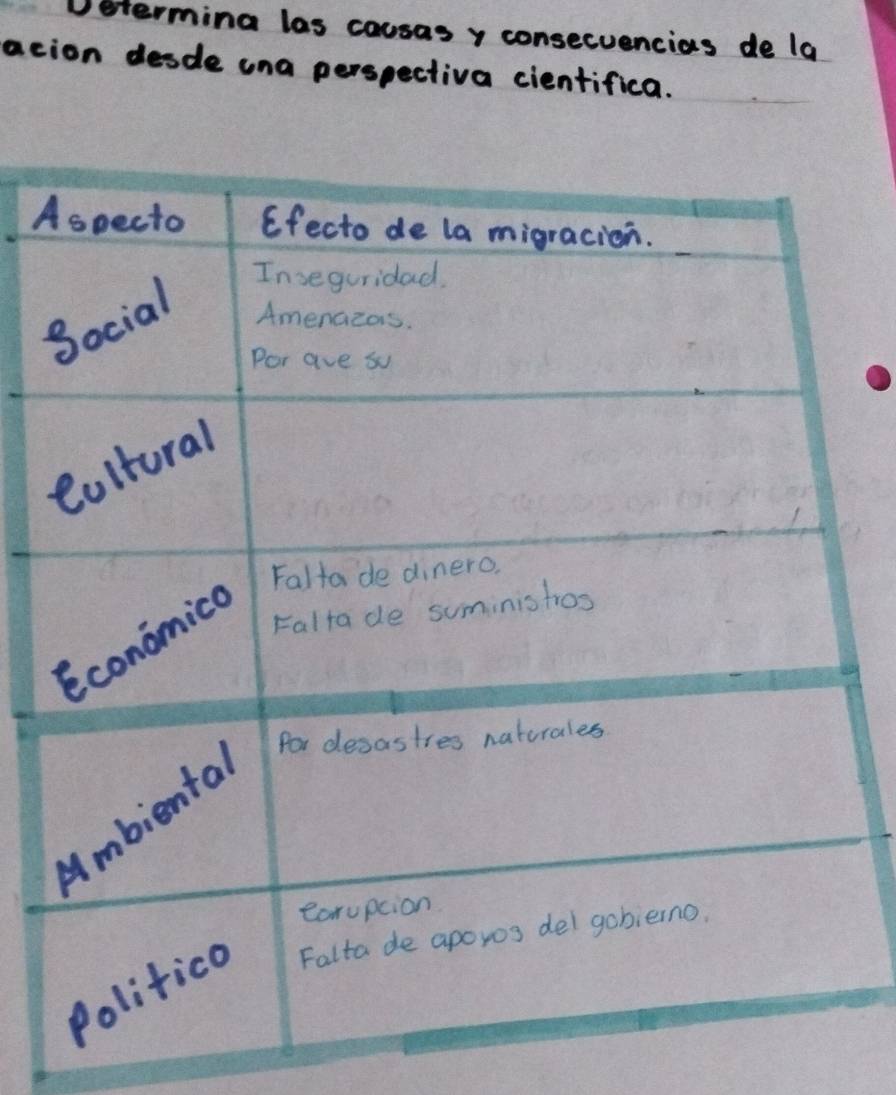 Determina las causas y consecuencias de la
acion desde una perspectiva cientifica.
Aspecto
Efecto de la migración.
Social
Inseguridad.
Amenazas.
Por que su
Cultural
Económico
Falta de dinero.
Falta de suministros
Ambiental
Por desastres naturales
Politico
Corupcion.
Falta de apoyos del gobierno.